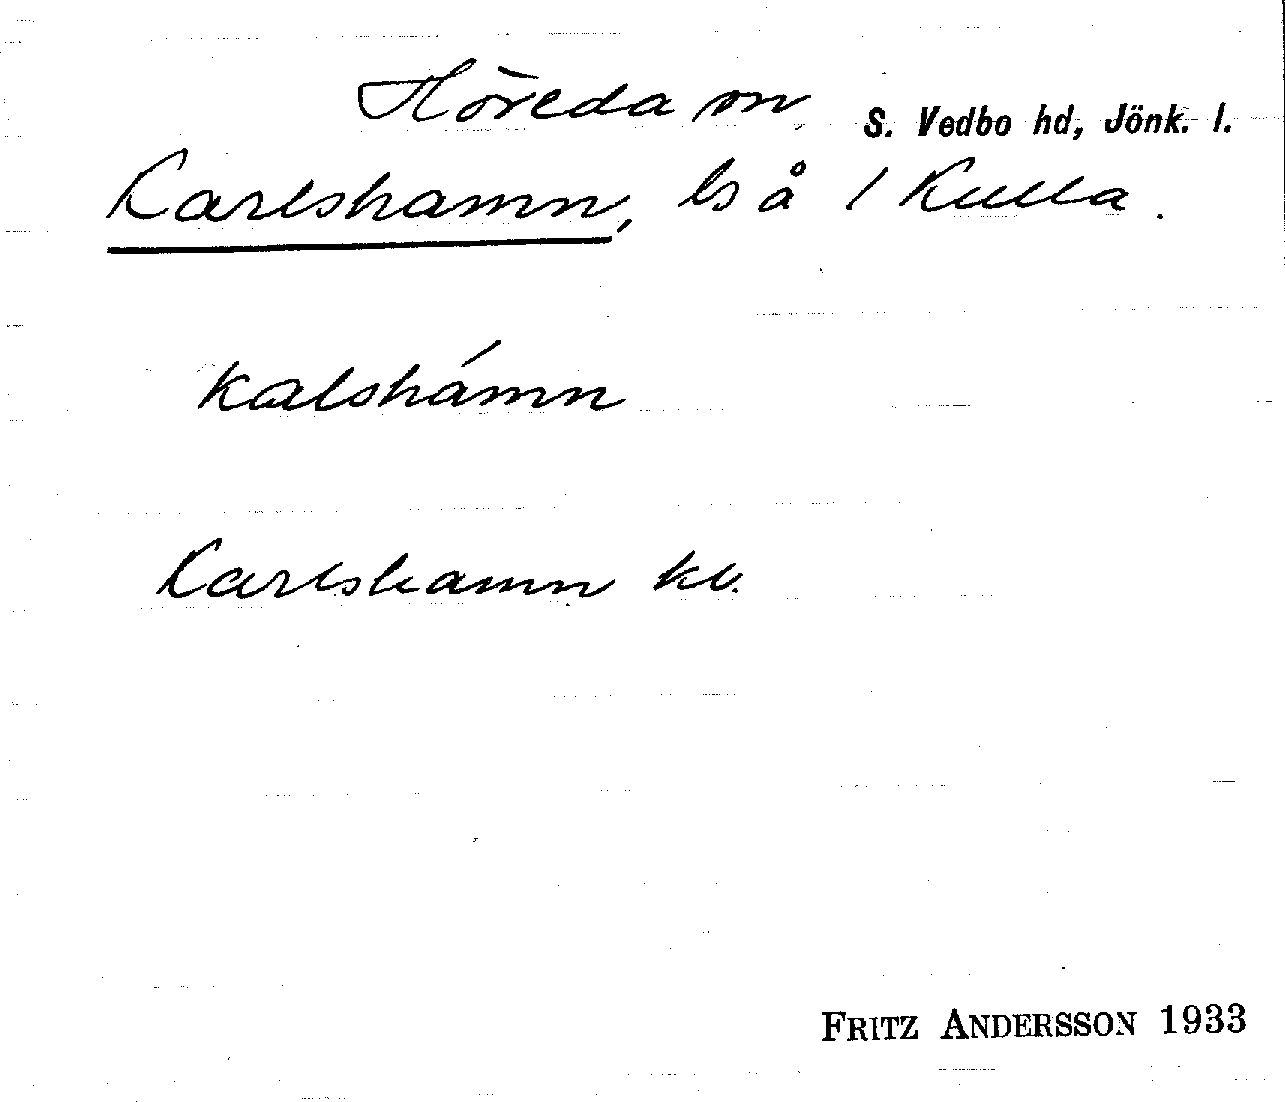 Höreda sn S. Vedbo hd, Jönk. l.
Karlshamn, ls å 1 Kulla.
kalshámn
Karlshamn kv.
FRITZ ANDERSSON 1933